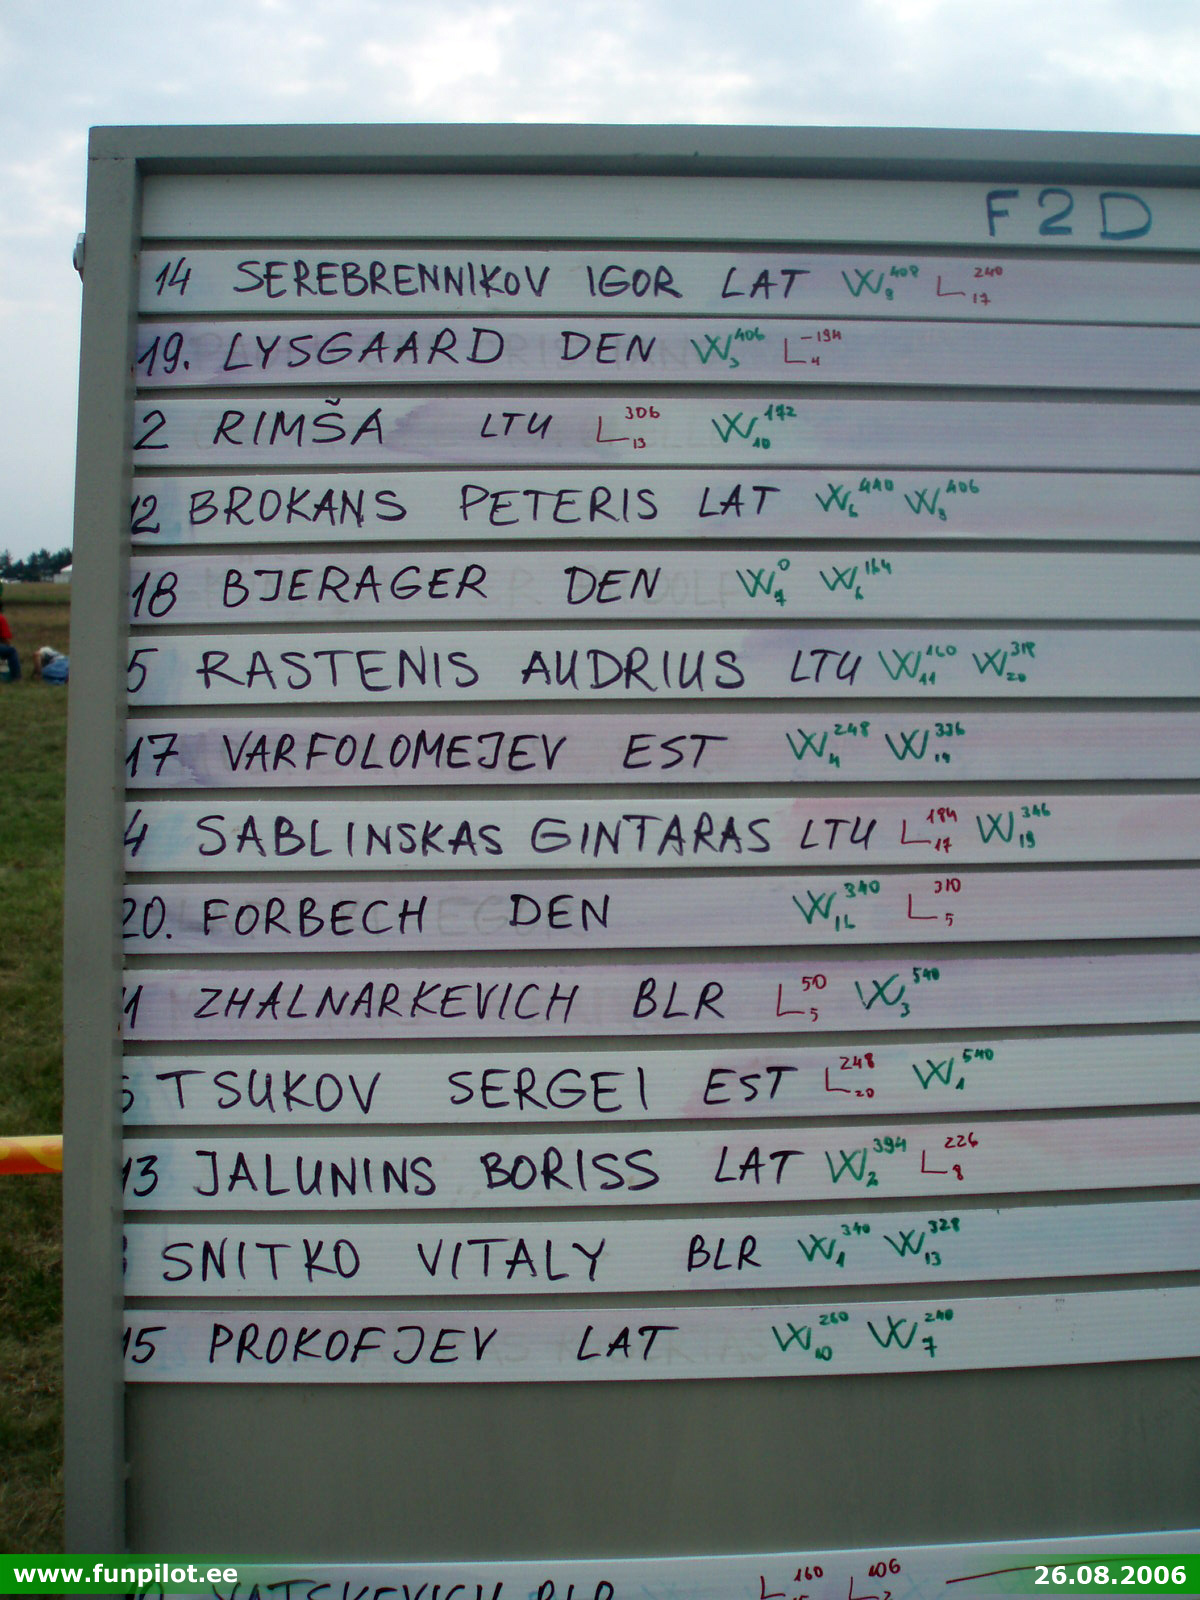 F2D
14 SEREBRENNIKOV IGOR LAT W 408 L 240 17
19. LYSGAARD DEN W 406 L -194 4
2 RIMŠA LTU L 306 13 W 172 10
12 BROKANS PETERIS LAT W 440 6 W 406
18 BJERAGER DEN W 0 W 164
5 RASTENIS AUDRIUS LTU W 160 11 W 318 20
17 VARFOLOMEJEV EST W 248 W 336 19
4 SABLINSKAS GINTARAS LTU L 194 17 W 346
20. FORBECH DEN W 340 L 310 5
1 ZHALNARKEVICH BLR L 50 5 W 540 3
TSUKOV SERGEI EST L 248 20 W 540 1
13 JALUNINS BORISS LAT W 394 2 L 226 8
SNITKO VITALY BLR W 340 1 W 328 13
15 PROKOFJEV LAT W 260 10 W 240 7
YATSKEVICH BLR L 160 L 106
www.funpilot.ee
26.08.2006